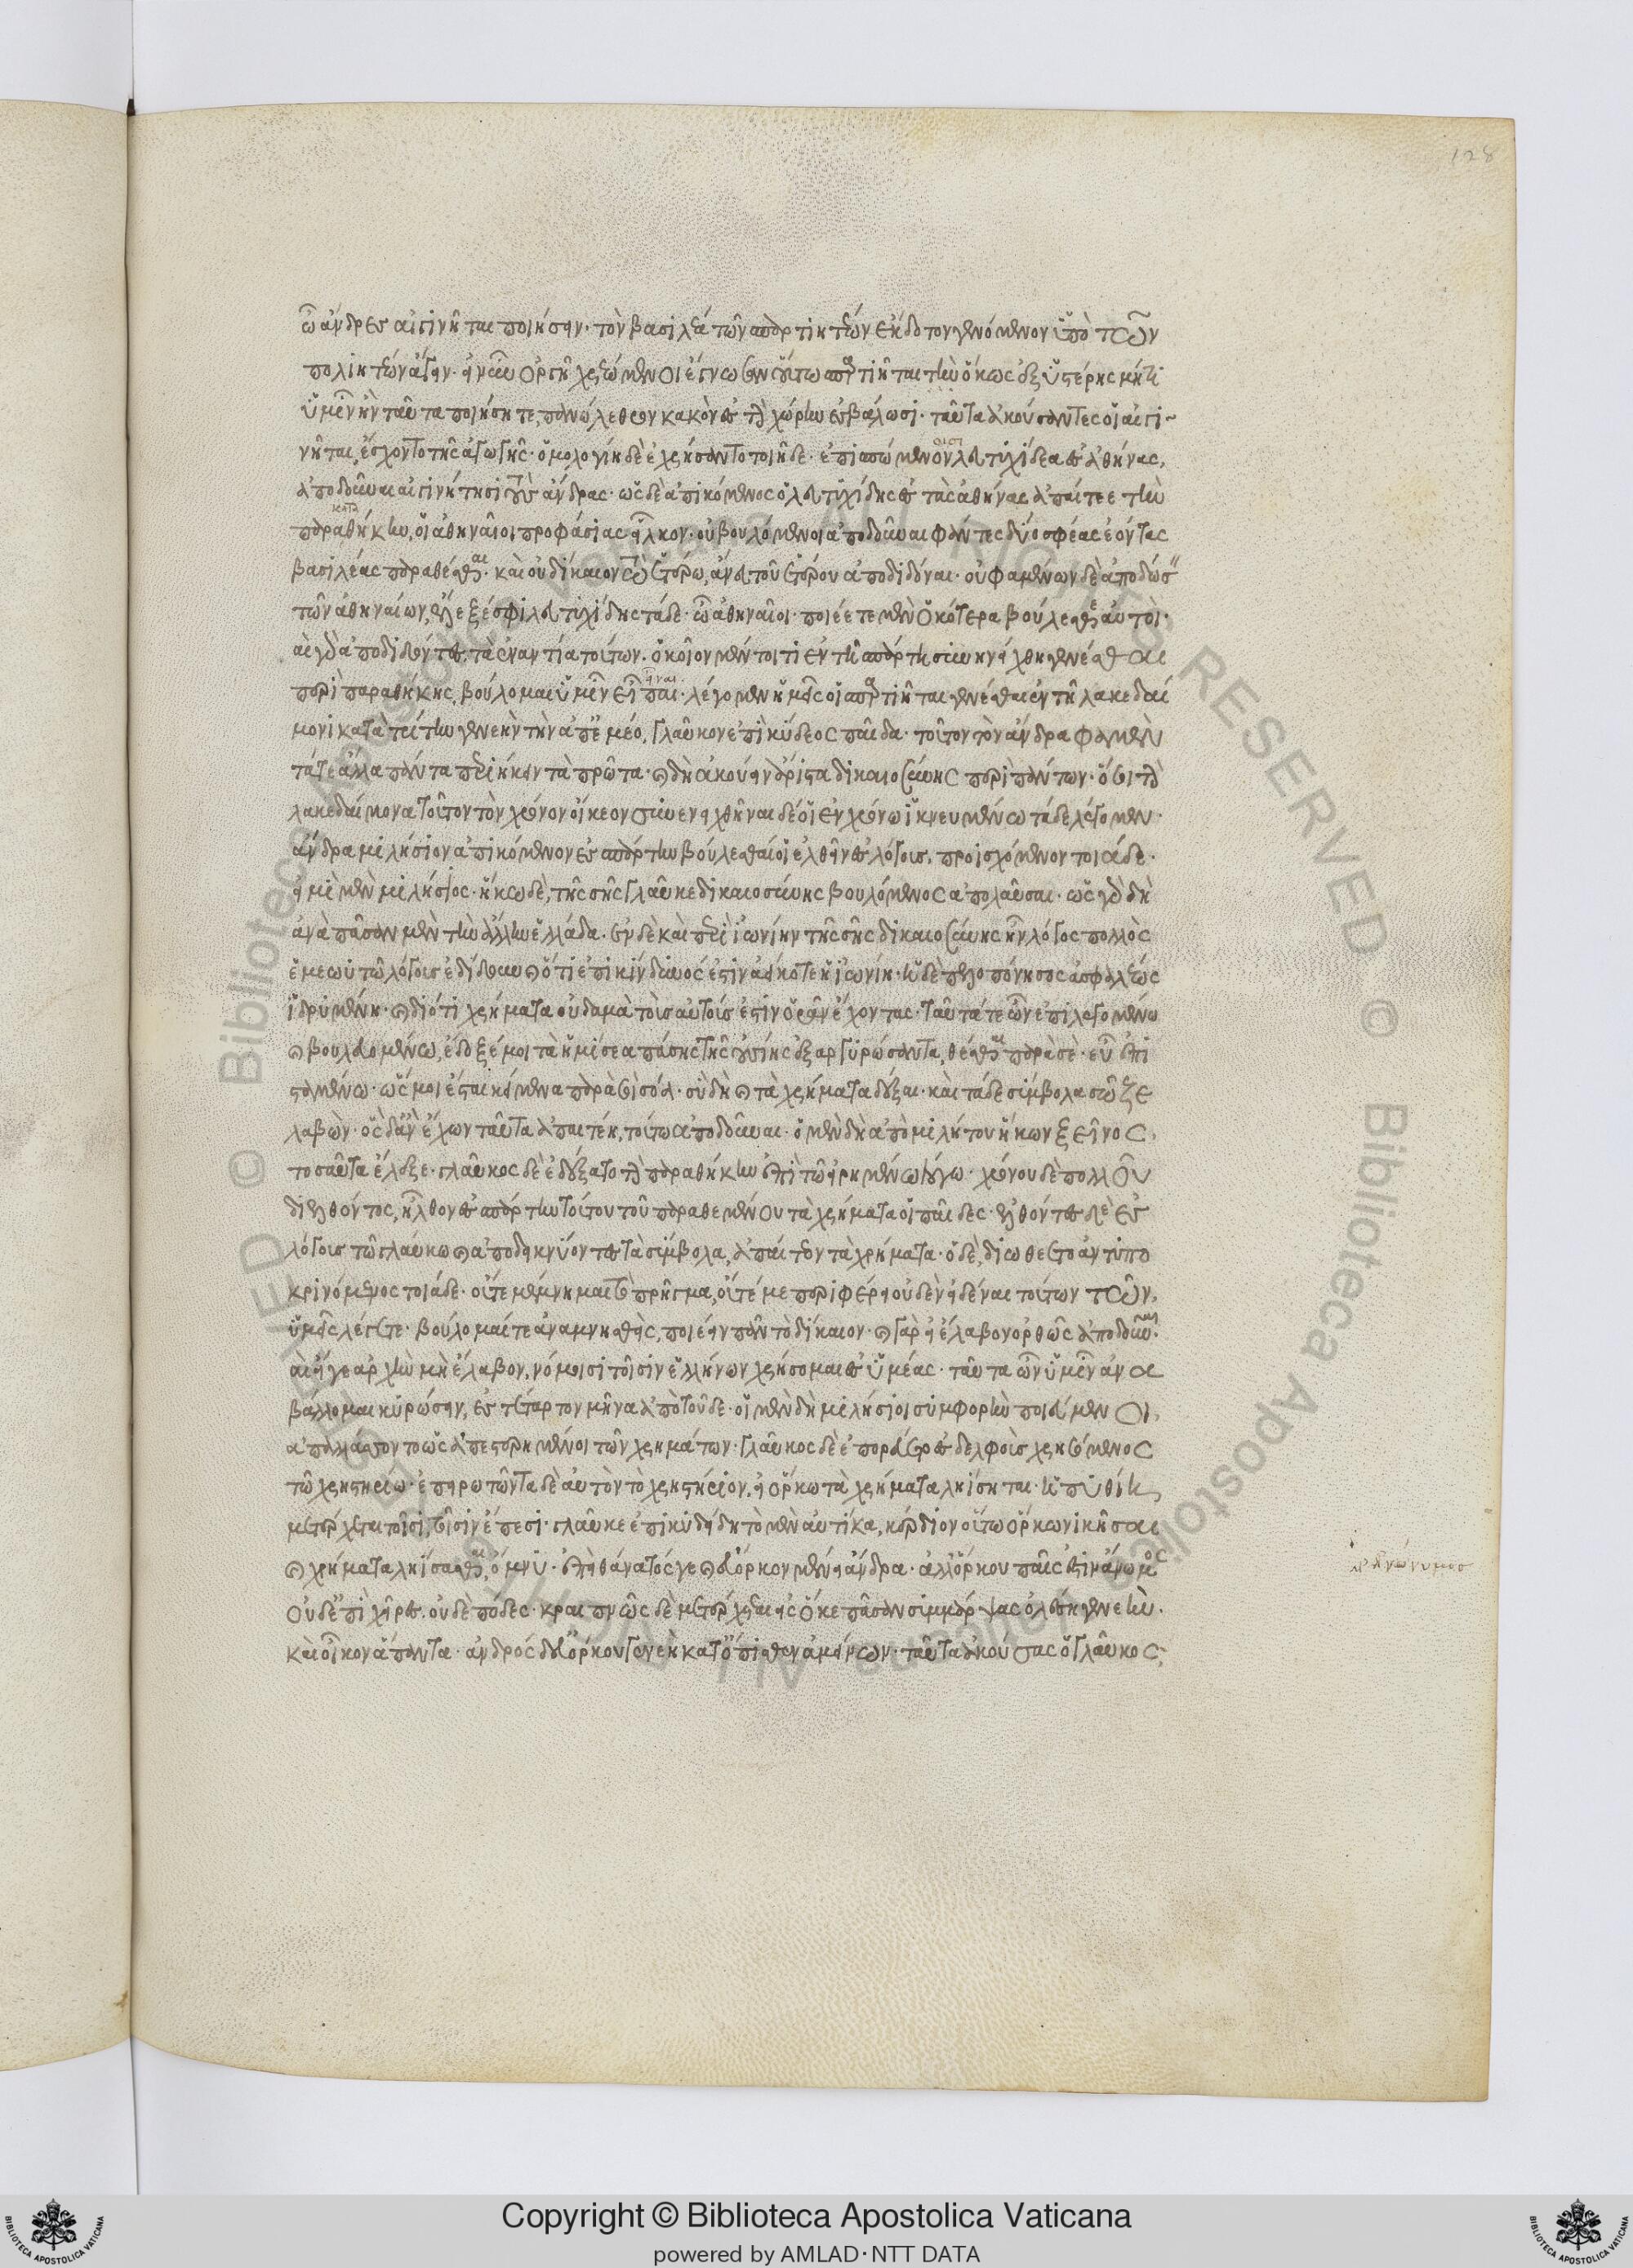 128
ὦ ἄνδρες αἰγινῆται ποιήσειν· τὸν βασιλέα τῶν σπαρτιητέων ἔκδοτον γενόμενον ὑπὸ τῶν
πολιητέων ἄγειν· εἰ νῦν ὀργῇ χρεώμενοι ἔγνωσαν οὕτω σπαρτιῆται τὴν ὅκως ἐξ ὑστέρης μήτι
ὑμῖν ἢν ταῦτα ποιήσητε, πανώλεθρον κακὸν ἐς τὴν χώρην ἐσβάλωσι· ταῦτα ἀκούσαντες οἱ αἰγι
νῆται, ἔσχοντο τῆς ἀγωγῆς· ὁμολογίη δὲ ἐχρήσαντο τοιῇδε· ἐπισπώμενον λευτυχίδεα ἐς ἀθήνας,
ἀποδοῦναι αἰγινήτῃσι τοὺς ἄνδρας· ὡς δὲ ἀπικόμενος ὁ λευτυχίδης ἐς τὰς ἀθήνας ἀπαίτεε τὴν
παραθήκην, οἱ ἀθηναῖοι προφάσιας εἷλκον· οὐ βουλόμενοι ἀποδοῦναι φάντες δύο σφέας ἐόντας
βασιλέας παραθέσθαι· καὶ οὐ δίκαιον τῷ ἑτέρῳ, ἄνευ τοῦ ἑτέρου ἀποδιδόναι· οὐ φαμένων δὲ ἀποδώσειν
τῶν ἀθηναίων, ἔλεξέ σφι λευτυχίδης τάδε· ὦ ἀθηναῖοι· ποιέετε μὲν ὁκότερα βούλεσθε αὐτοί·
περὶ παραθήκης, βούλομαι ὑμῖν εἶπαι· λέγομεν ἡμεῖς οἱ σπαρτιῆται γενέσθαι ἐν τῇ λακεδαί
μονι κατὰ τρίτην γενεὴν τὴν ἀπ' ἐμέο, γλαῦκον ἐπικύδεος παῖδα· τοῦτον τὸν ἄνδρα φαμὲν
τά τε ἄλλα πάντα περιήκειν τὰ πρῶτα· καὶ δὴ ἀκούειν ἄριστα δικαιοσύνης περὶ πάντων· ὅσοι τὴν
λακεδαίμονα τοῦτον τὸν χρόνον οἴκεον· συνενειχθῆναι δέ οἱ ἐν χρόνῳ ἱκνευμένῳ τάδε λέγομεν·
ἄνδρα μιλήσιον ἀπικόμενον ἐς σπάρτην βούλεσθαί οἱ ἐλθεῖν ἐς λόγους, προισχόμενον τοιάδε·
εἰμὶ μὲν μιλήσιος· ἥκω δὲ, τῆς σῆς γλαῦκε δικαιοσύνης βουλόμενος ἀπολαῦσαι· ὡς γὰρ δὴ
ἀνὰ πᾶσαν μὲν τὴν ἄλλην ἑλλάδα· ἐν δὲ καὶ περὶ ἰωνίην τῆς σῆς δικαιοσύνης ἦν λόγος πολλὸς
ἐμεωυτῷ λόγους ἐδίδουν καὶ ὅτι ἐπικίνδυνός ἐστιν ἀεί κοτε ἡ ἰωνίη· ἡ δὲ πελοπόννησος ἀσφαλέως
ἱδρυμένη· καὶ διότι χρήματα οὐδαμὰ τοὺς αὐτούς ἐστιν ὁρᾶν ἔχοντας· ταῦτά τε ὦν ἐπιλεγομένῳ
καὶ βουλευομένῳ, ἔδοξέ μοι τὰ ἡμίσεα πάσης τῆς οὐσίης ἐξαργυρώσαντα, θέσθαι παρὰ σέ· εὖ ἐπι
σταμένῳ· ὥς μοι ἔσται κείμενα παρὰ σοὶ σόα· σὺ δὴ καὶ τὰ χρήματα δέξαι· καὶ τάδε σύμβολα σῶζε
λαβών· ὃς δ' ἂν ἔχων ταῦτα ἀπαιτέη, τούτῳ ἀποδοῦναι· ὁ μὲν δὴ ἀπὸ μιλήτου ἥκων ξεῖνος,
τοσαῦτα ἔλεξε· γλαῦκος δὲ ἐδέξατο τὴν παραθήκην ἐπὶ τῷ εἰρημένῳ λόγῳ· χρόνου δὲ πολλοῦ
διελθόντος, ἦλθον ἐς σπάρτην τούτου τοῦ παραθεμένου τὰ χρήματα οἱ παῖδες· ἐλθόντες δὲ ἐς
λόγους τῷ γλαύκῳ καὶ ἀποδεικνύοντες τὰ σύμβολα, ἀπαίτεον τὰ χρήματα· ὁ δὲ, διωθέετο ἀντυπο
κρινόμενος τοιάδε· οὔτε μέμνημαι τὸ πρῆγμα, οὔτέ με περιφέρει οὐδὲν εἰδέναι τούτων τῶν,
ὑμεῖς λέγετε· βούλομαί τε ἀναμνησθεὶς, ποιέειν πᾶν τὸ δίκαιον· καὶ γὰρ εἰ ἔλαβον ὀρθῶς ἀποδοῦναι·
βάλλομαι κυρώσειν, ἐς τέταρτον μῆνα ἀπὸ τοῦδε· οἱ μὲν δὴ μιλήσιοι συμφορὴν ποιεύμενοι,
ἀπαλλάσσοντο ὡς ἀπεστερημένοι τῶν χρημάτων· γλαῦκος δὲ ἐπορεύετο ἐς δελφοὺς χρησόμενος
τῷ χρηστηρίῳ· ἐπειρωτῶντα δὲ αὐτὸν τὸ χρηστήριον, εἰ ὅρκῳ τὰ χρήματα ληίσηται· ἡ πυθίη
μετέρχεται τοῖσι, τοῖσιν ἔπεσι· γλαῦκε ἐπικυδείδη τὸ μὲν αὐτίκα, κέρδιον οὕτω ὅρκω νικῆσαι
καὶ χρήματα ληίσασθαι, ὄμνυ· ἐπεὶ θάνατός γε καὶ εὔορκον μένει ἄνδρα· ἀλλ' ὅρκου παῖς ἐστιν ἀνώνυμος
οὐδ' ἔπι χεῖρες οὐδὲ πόδες· κραιπνῶς δὲ μετέρχεται εἰς ὅ κε πᾶσαν συμμάρψας ὀλέσῃ γενεήν·
καὶ οἶκον ἅπαντα· ἀνδρὸς δ' εὐόρκου γενεὴ κατόπισθεν ἀμείνων· ταῦτα ἀκούσας ὁ γλαῦκος,
Copyright © Biblioteca Apostolica Vaticana
powered by AMLAD·NTT DATA